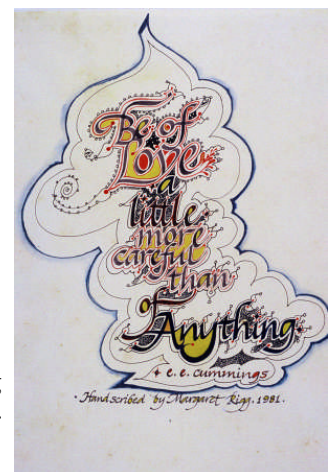 Be of
Love
a
little
more
careful
than
of
Anything.
+ e.e. cummings
· Hand scribed by Margaret Rigg. 1981.